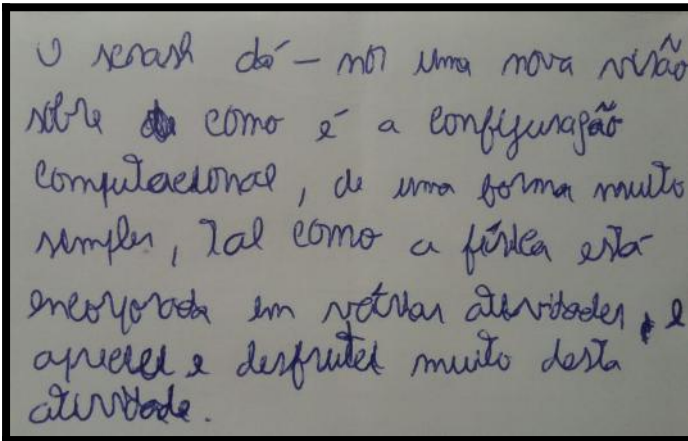 O scrash dá-nos uma nova visão
sobre como é a configuração
computacional, de uma forma muito
simples, Tal como a física está
encorporada em várias atividades, e
apreciei e desfrutei muito desta
atividade.